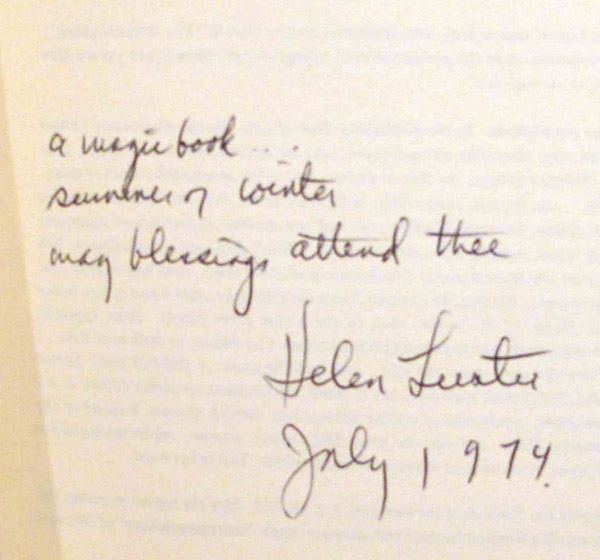 a magic book ...
summer or winter
may blessings attend thee
Helen Luster
July 1974.